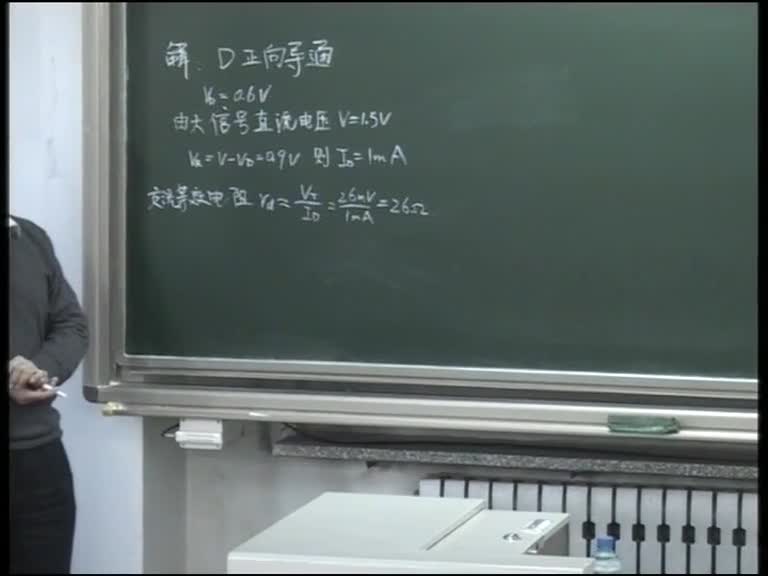 解: D正向导通
V_D = 0.6V
由大信号直流电压 V=1.5V
V_R = V-V_D = 0.9V 则 I_D = 1mA
交流等效电阻 r_d ≈ V_T/I_D = 26mV/1mA = 26Ω